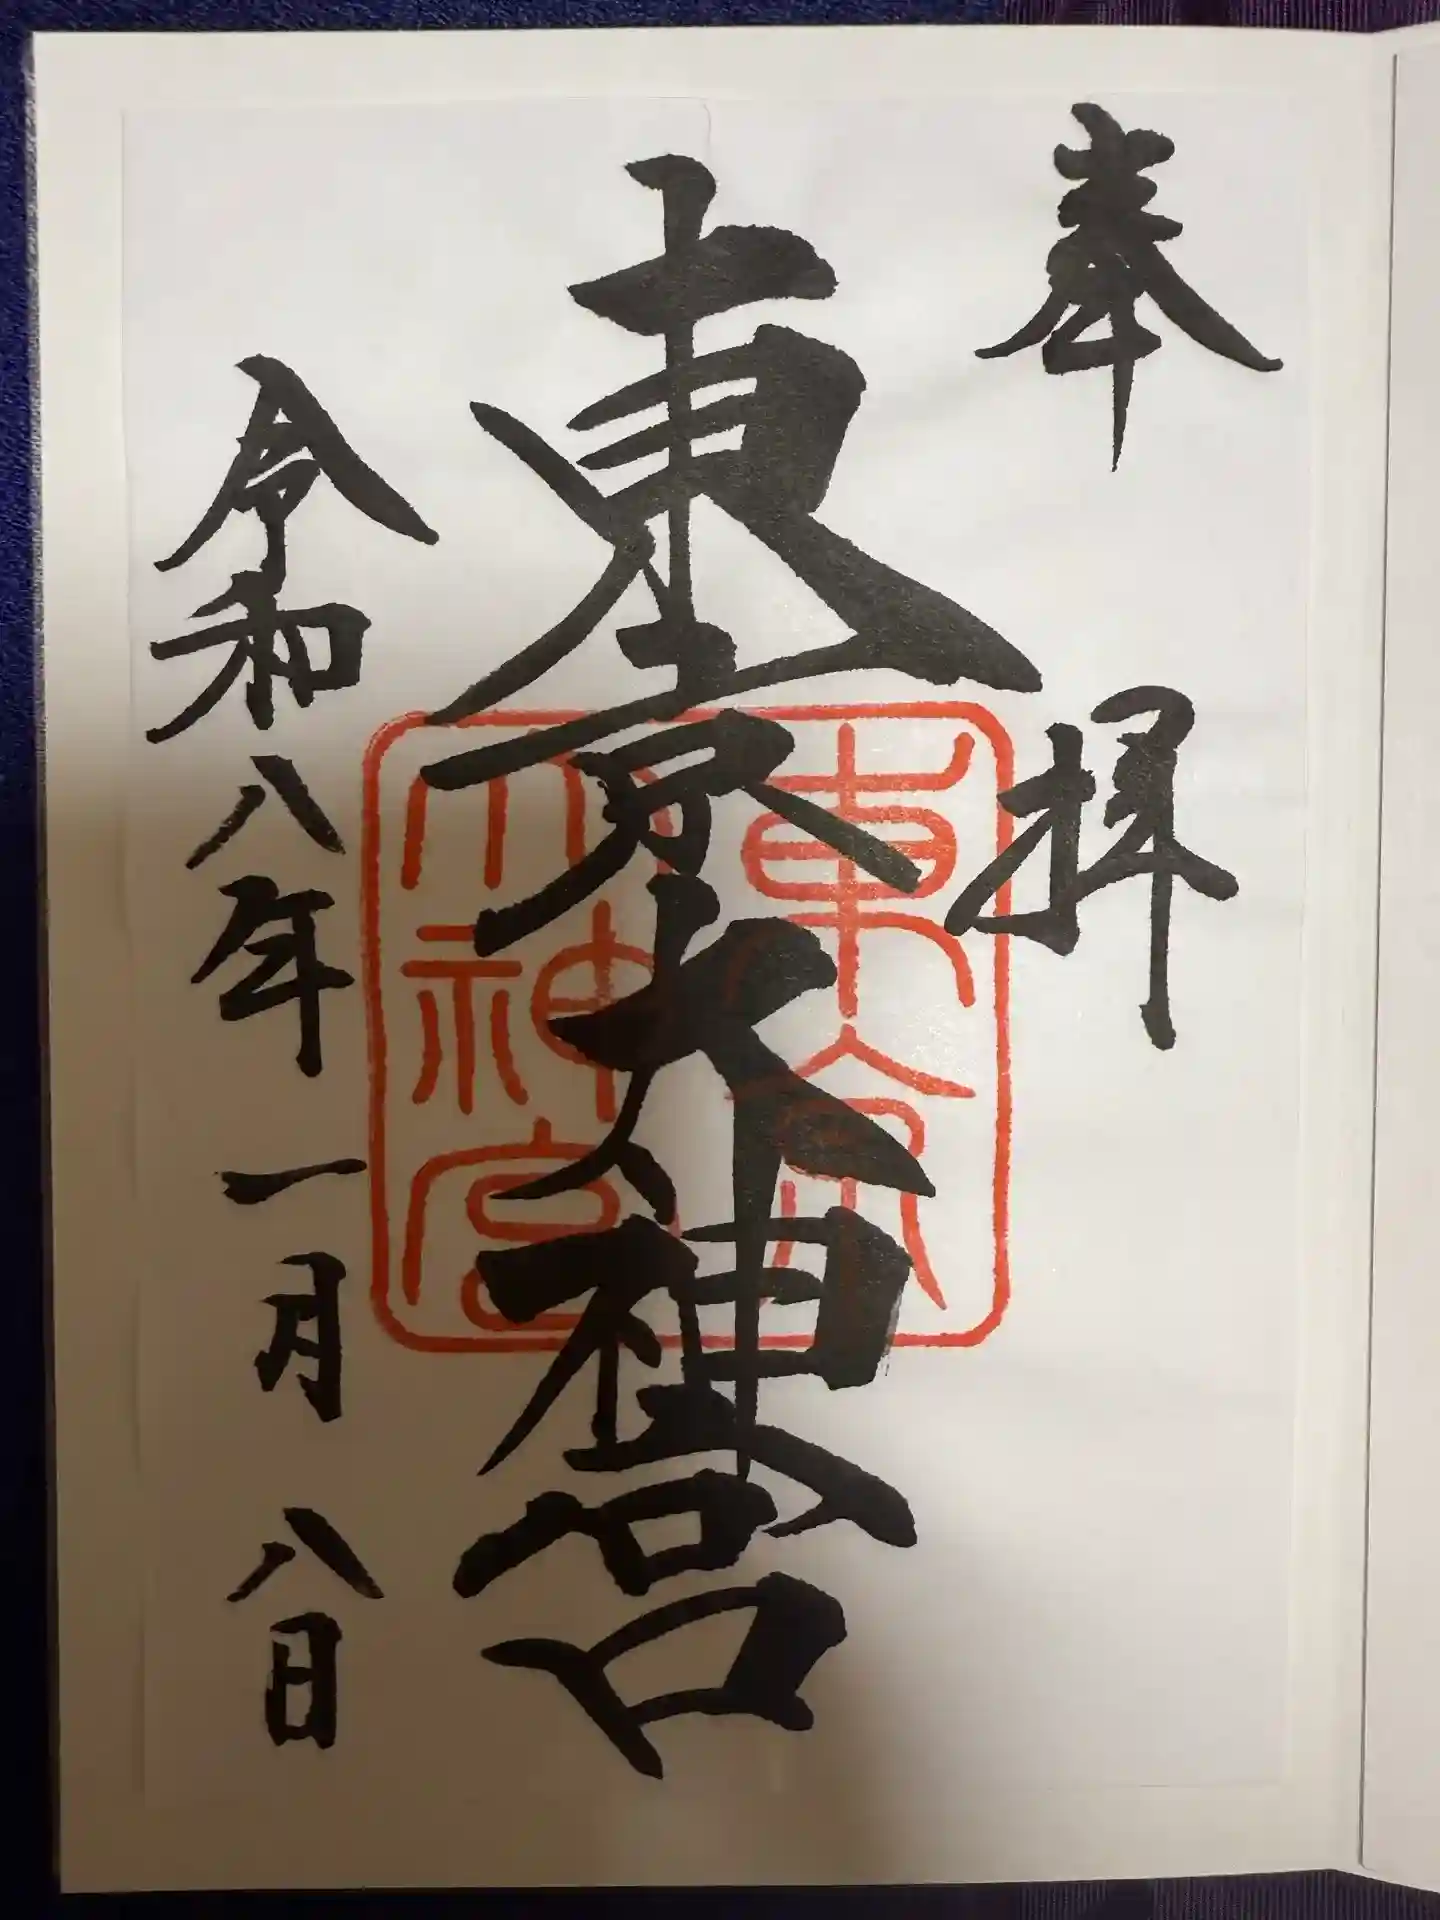 奉拝
東京大神宮
東京
大神宮
令和八年一月八日